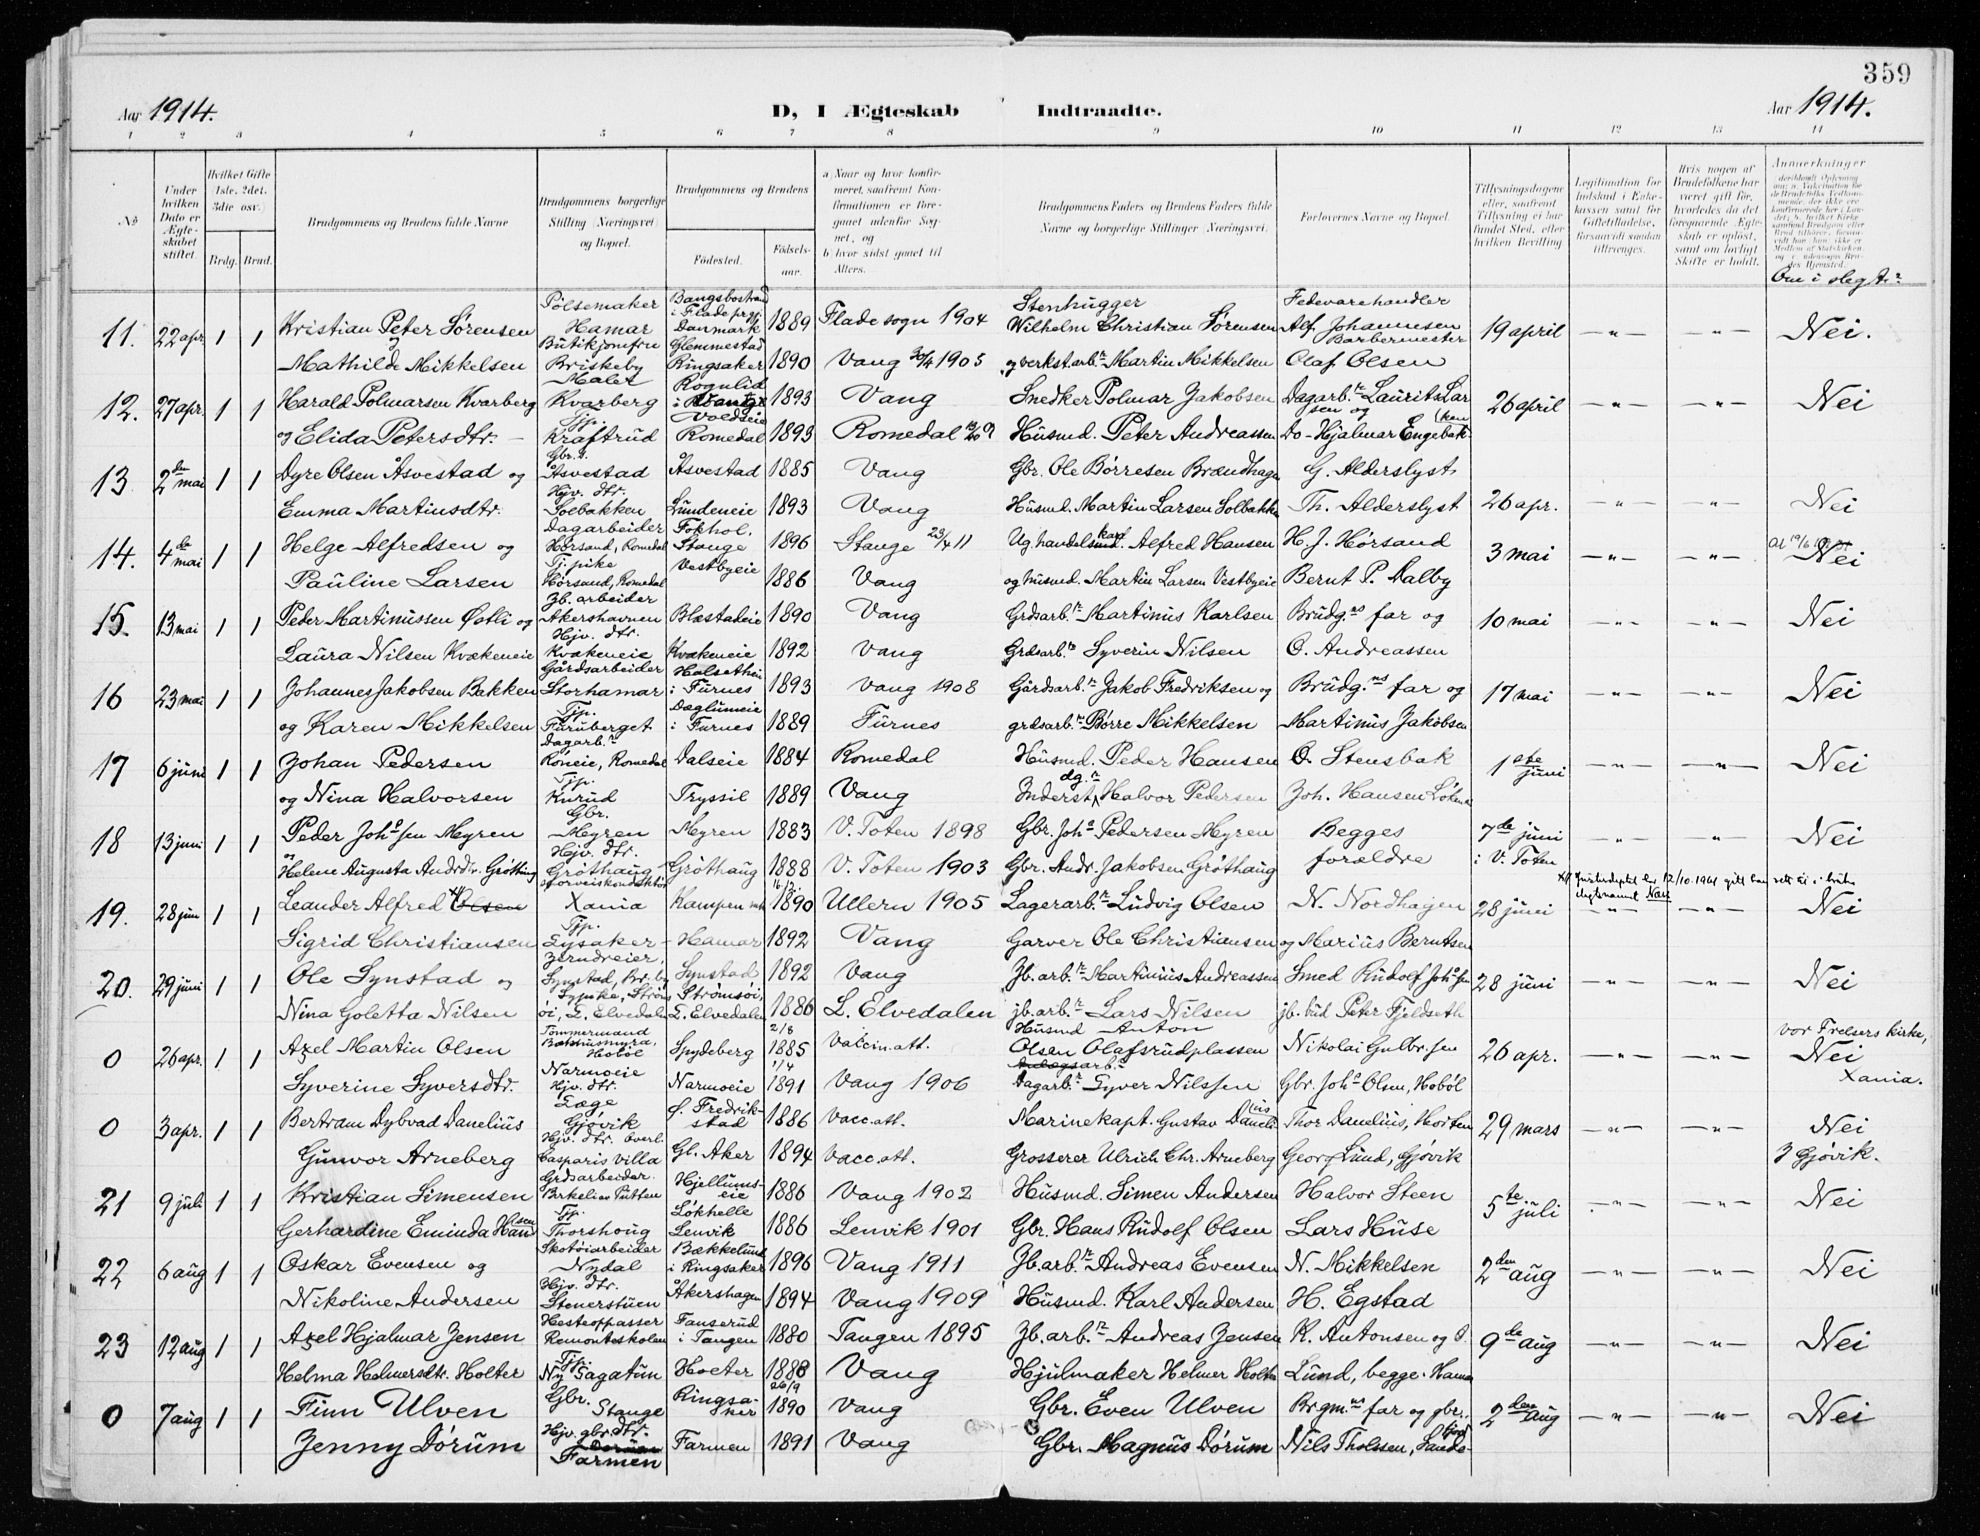 359
Aar 1914. D, I Ægteskab Indtraadte. Aar 1914.
1 2 3 4 5 6 7 8 9 10 11 12 13 14
No
Under hvilken Dato er Ægteskabet stiftet.
Hvilket Gifte (1ste, 2det, 3die osv.)
Brdg. Brud.
Brudgommens og Brudens fulde Navne
Brudgommens borgerlige Stilling (Næringsvei) og Bopæl.
Brudgommens og Brudens
Fødested. Fødselsaar.
a Naar og hvor konfirmeret, saafremt Konfirmationen er foregaaet udenfor Sognet, og
b hvor sidst gaaet til Alters.
Brudgommens Faders og Brudens Faders fulde Navne og borgerlige Stillinger (Næringsvei).
Forlovernes Navne og Bopæl.
Tillysningsdagene eller, saafremt Tillysning ei har fundet Sted, efter hvilken Bevilling
Legitimation for Indskud i Enkekassen samt for Giftetilladelse, forsaavidt saadan tiltrænges.
Hvis nogen af Brudefolkene har været gift før, hvorledes da det foregaaende Ægteskab er opløst, samt om lovligt Skifte er holdt.
Anmerkninger
Om i slegt?
11. 22 apr. 1 1 Kristian Peter Sørensen Pølsemaker Hamar Bangsbostrand i Flade prgj. Danmark 1889 Flade sogn 1904 Stenhugger Wilhelm Christian Sørensen Fedevarehandler Alf. Johannesen 19 april -"- -"- Nei.
og Mathilde Mikkelsen Butikjomfru Briskeby Glemmestad Ringsaker 1890 Vang 30/4 1905 og verkst.arb.r Martin Mikkelsen Barbermester Olaf Olsen
12. 27 apr. 1 1 Harald Polmarsen Kvarberg Maler Kvarberg Rognlid i Vang 1893 Vang Snedker Polmar Jakobsen Dagarb.r Laurits Larsen og 26 april -"- -"- Nei
og Elida Petersdtr. - Tjp. Kraftrud Voldeie Romedal 1893 Romedal Husmd. Peter Andreassen Do - Hjalmar Engebakken
13 2de mai 1 1 Dyre Olsen Åsvestad og Gbr.s. Åsvestad Åsvestad 1885 Vang Gbr. Ole Børresen Brændhagen G. Alderslyst
Emma Martinsdtr. Hjv. dtr. Solbakken Lundeneie 1893 Vang Husmd. Martin Larsen Solbakken Th. Alderslyst 26 apr. -"- -"- Nei
14. 4de mai 1 1 Helge Alfredsen og Dagarbeider Hørsand, Romedal Fokhol, Stange 1896 Stange 23/4 11 Ug. handelskarl Alfred Hansen H. J. Hørsand 3 mai -"- -"- Nei
Pauline Larsen Tj. pike Hørsand, Romedal Vestbyeie 1886 Vang og husmd. Martin Larsen Vestbyeie Bernt P. Dalby
15. 13 mai 1 1 Peder Martinussen Østli og Jb. arbeider Akershavnen Blæstadeie 1890 Vang Grdsarb.r Martinus Karlsen Brudg.ns far og 10 mai -"- -"- Nei
Laura Nilsen Kvækeneie Hjv. dtr. Kvækeneie Kvækeneie 1892 Vang Grdsarb.r Syverin Nilsen O. Andreassen
16 23 mai 1 1 Johannes Jakobsen Bakken Gårdsarbeider Storhamar Halsetheie i Furnes 1893 Vang 1908 Gårdsarb.r Jakob Fredriksen og Brudg.ns far og 17 mai -"- -"- Nei
og Karen Mikkelsen Tjp. Furuberget Daglumeie i Furnes 1889 Furnes grdsarb.r Børre Mikkelsen Martinus Jakobsen
17 6 juni 1 1 Johan Pedersen Dagarb.r Røneie, Romedal Dalseie 1884 Romedal Husmd. Peder Hansen O. Stensbak 1ste juni -"- -"- Nei
og Nina Halvorsen Tjp. Knrud Tryssil 1889 Vang Inderst, dg.r Halvor Pedersen Joh. Hansen Løken
18 13 juni 1 1 Peder Johs.sen Myren Gbr. Myren Myren 1883 V. Toten 1898 Gbr. Johs Pedersen Myren Begges 7de juni -"- " Nei
og Helene Augusta Andrdtr. Grøthaug Hjv. dtr. Grøthaug Grøthaug 1888 V. Toten 1903 Gbr. Andr. Jakobsen Grøthaug forældre i V. Toten
19. 28 juni 1 1 Leander Alfred x) Olsen Sporveiskonduktør Xania Kampen 16/2 1890 Ullern 1905 Lagerarb.r Ludvig Olsen N. Nordhagen 28 juni -"- -"- Nei
Sigrid Christiansen Tjp. Lysaker - Hamar 1892 Vang Garver Ole Christiansen og Marius Berntsen
20. 29 juni 1 1 Ole Synstad og Synstad, Br.by Synstad 1892 Vang Jb. arb.r Martinius Andreassen Smed Rudolf Johs.sen 28 juni -"- -"- Nei
Nina Goletta Nilsen Strømsøi, L. Elvedalen Strømsøi, L. Elvedalen 1886 L. Elvedalen jb. arb.r Lars Nilsen jb. bud Peter Fjeldseth
0 26 apr. 1 1 Axel Martin Olsen Tømmermand Hobøl Spydeberg 2/8 1885 Vaccin.att. Husmd Anton Olsen Olafsrudplassen Nikolai Gulbr.sen 26 apr. -"- -"- vor Frelsers kirke, Nei Xania.
Syverine Syversdtr. Narmoeie Hjv. dtr. Narmoeie 1/4 1891 Vang 1906 Dagarb.r Syver Nilssen Gbr. Johs Olsen, Hobøl
0 3 apr. 1 1 Bertram Dybvad Danelius Læge Gjøvik f. Fredrikstad 1886 Vacc.att. Marinekapt. Gustav Danelius Thor Danelius, Horten 29 mars -"- -"- Nei
Gunvor Arneberg Hjv. dtr. Casparis Villa Gl. Aker 1894 Vacc.att. Grosserer Ulrich Chr. Arneberg Georg Lund, Gjøvik I Gjøvik.
21 9 juli 1 1 Kristian Simensen Grdsarbeider Birkelien Putten Hjellumseie 1886 Vang 1902 Husmd. Simen Andersen Halvor Steen 5te juli -"- -"- Nei
Gerhardine Eminda Hansen Tjp. Thorshoug Løkhelle Lenvik 1886 Lenvik 1901 Gbr. Hans Rudolf Olsen Lars Huse
22 6 aug 1 1 Oskar Evensen og Skotøiarbeider Nydal Bækkelund i Ringsaker 1896 Vang 1911 Jb. arb.r Andreas Evensen N. Mikkelsen 2den aug -"- -"- Nei
Nikoline Andersen Hjv. dtr. Stenerstuen Åkershagen 1894 Vang 1909 Husmd. Karl Andersen H. Egstad
23 12 aug 1 1 Axel Hjalmar Jensen Hestepasser Remonteskolen Fanserud i Tangen 1880 Tangen 1895 Jb. arb.r Andreas Jensen K. Antonsen og O. 9de aug -"- -"- Nei
Helma Helmersdtr. Holter Tjp. Ny Sagatun Hoeter 1888 Vang Hjulmaker Helmer Holter Lund, begge Hamar
0 7 aug 1 1 Finn Ulven Gbr. Stange Ringsaker 26/9 1890 Vang Gbr. Even Ulven Brgm.ns far og gbr. 2den aug -"- -"- Nei
Jenny Dørum Hjv. gbr. dtr. Farmen Farmen 1891 Vang Gbr. Magnus Dørum Nils Tholssen,